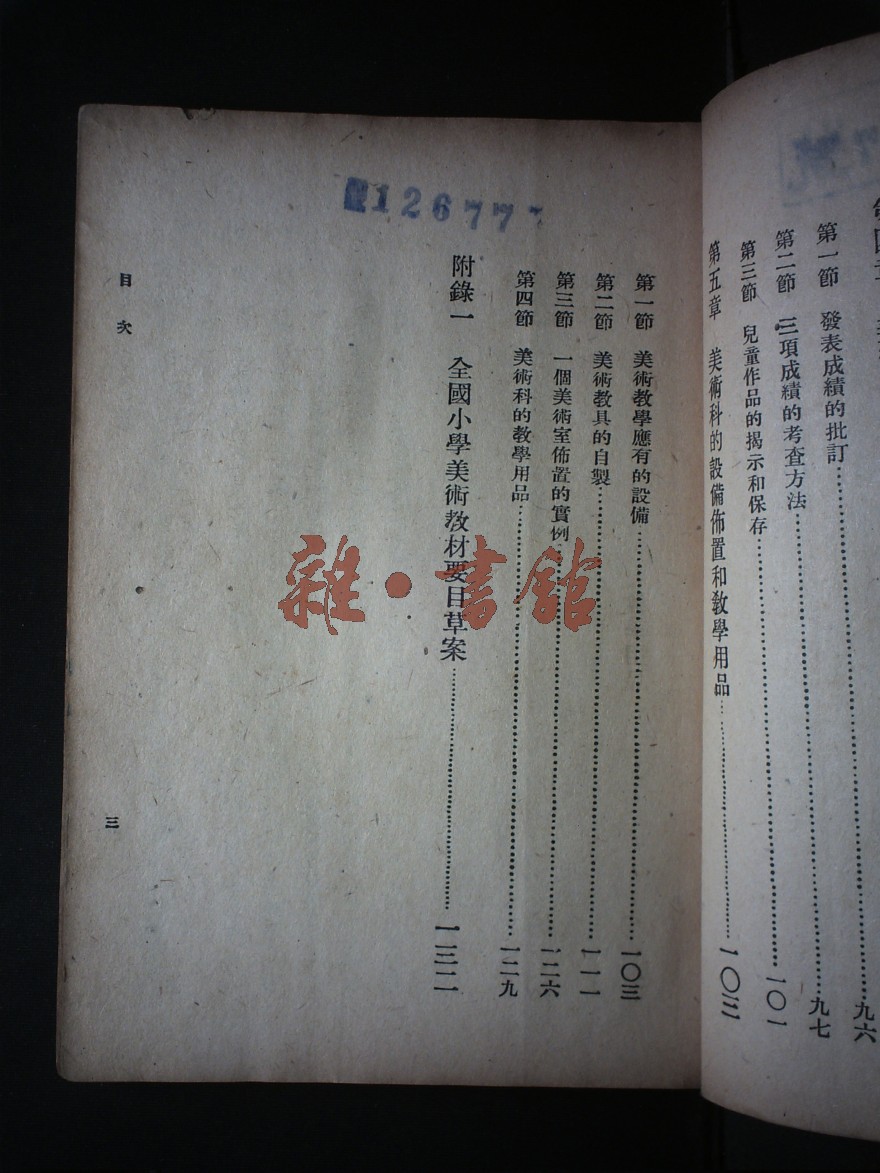 第一節　發表成績的批訂……九六
第二節　三項成績的考查方法……九七
第三節　兒童作品的揭示和保存……一〇一
第五章　美術科的設備佈置和教學用品……一〇三
126777
第一節　美術教學應有的設備……一〇三
第二節　美術教具的自製……一一一
第三節　一個美術室佈置的實例……一二六
第四節　美術科的教學用品……一二九
附錄一　全國小學美術教材要目草案……一三二
目次
三
雜·書館